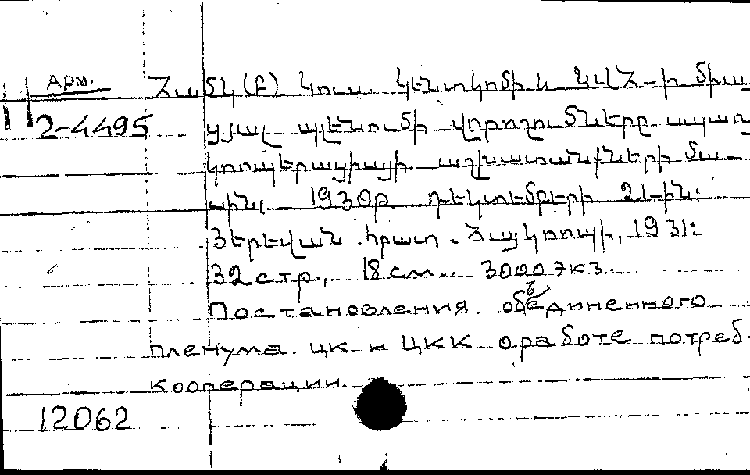 Арм.
2-4495
ՀամԿ(բ) Կուս. Կենտկոմի և ԿՎՀ-ի միա
ցյալ պլենումի վորոշումները սպառ
կոոպերացիայի աշխատանքների մա-
սին, 1930թ. դեկտեմբերի 21-ին:
Յերեվան. հրատ. Հայկոոպի, 1931:
32 стр., 18 см. 3000 экз.
Постановления объединенного
пленума ЦК и ЦКК о работе потреб.
кооперации.
12062